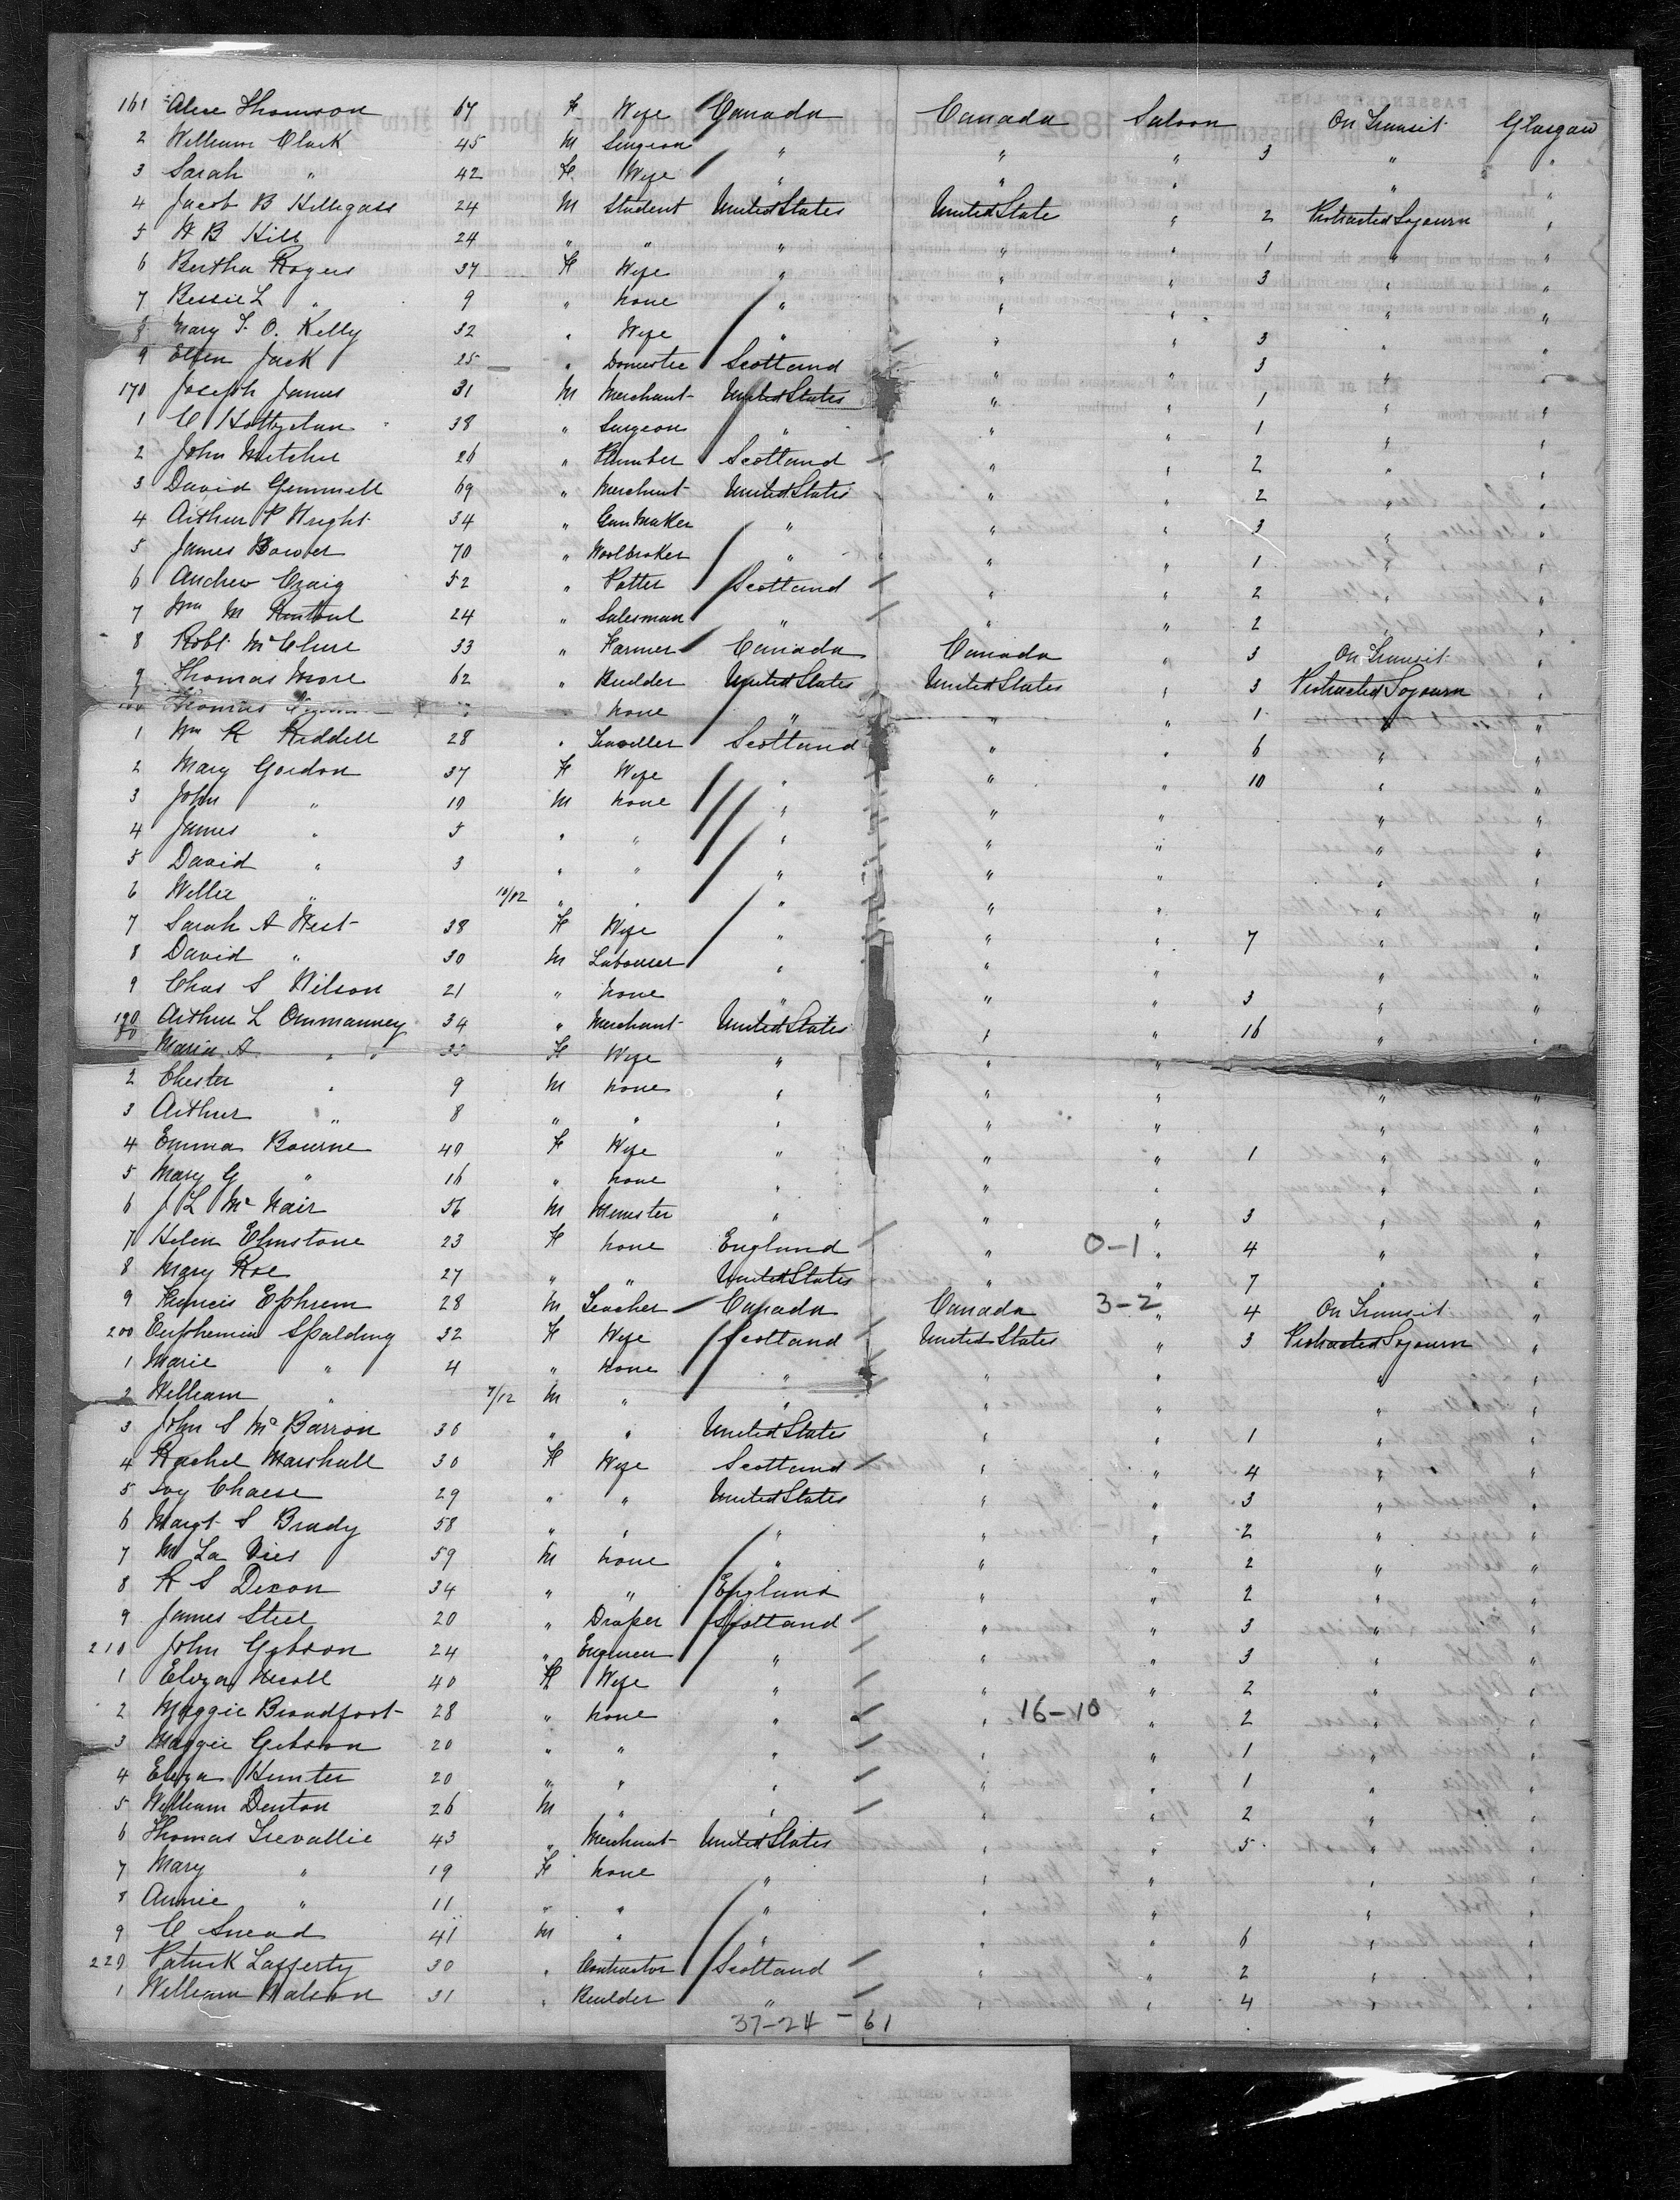 161 Alice Thomson 67 F Wife Canada Canada Saloon On Transit Glasgow
2 William Clark 45 M Surgeon " " " 3 " "
3 Sarah " 42 F Wife " " " " "
4 Jacob B Hillegass 24 M Student United States United State " 2 Protracted Sojourn "
5 H B Hill 24 " " " " " 1 " "
6 Bertha Rogers 37 F Wife " " " 3 " "
7 Bessie L " 9 " None " " " " "
8 Mary T. O. Kelly 32 " Wife " " " 3 " "
9 Ellen Jack 25 " Domestic Scotland " " 3 " "
170 Joseph James 31 M Merchant United States " " 1 " "
1 C 38 " Surgeon " " " 1 " "
2 John 26 " Plumber Scotland " " 2 " "
3 David Gemmell 69 " Merchant United States " " 2 " "
4 Arthur P Wright 34 " Gun Maker " " " 3 " "
5 James Bower 70 " Woolbroker " " " 1 " "
6 Andrew Craig 52 " Potter Scotland " " 2 " "
7 Wm M Rintoul 24 " Salesman " " " 2 " "
8 Robt McClure 33 " Farmer Canada Canada " 3 On Transit "
9 Thomas More 62 " Builder United States United States " 3 Protracted Sojourn "
Thomas None " " " 1 " "
1 Wm R Riddell 28 " Traveller Scotland " " 6 " "
2 Mary Gordon 37 F Wife " " " 10 " "
3 John " 10 M None " " " " "
4 James " 5 " " " " " " "
5 David " 3 " " " " " " "
6 Willie " 10/12 " " " " " " "
7 Sarah A West 38 F Wife " " " 7 " "
8 David " 30 M Labourer " " " " "
9 Chas S Wilson 21 " None " " " 3 " "
190 Arthur L Ommanney 34 " Merchant United States " " 16 " "
Maria A " F Wife " " " "
2 Chester " 9 M None " " " " "
3 Arthur " 8 " " " " " " "
4 Emma Bourne 49 F Wife " " " 1 " "
5 Mary G " 16 " None " " " " "
6 J L McNair 56 M Minister " " " 3 " "
7 Helen Elmstone 23 F None England " 0-1 " 4 " "
8 Mary Roe 27 " " United States " " 7 " "
9 Francis Ephrem 28 M Teacher Canada Canada 3-2 " 4 On Transit "
200 Euphemia Spalding 32 F Wife Scotland United States " 3 Protracted Sojourn "
1 Marie " 4 " None " " " " "
2 William " 7/12 M " " " " " "
3 John S McBarron 30 " " United States " " 1 " "
4 Rachel Marshall 30 F Wife Scotland " " 4 " "
5 Ivy Chaese 29 " " United States " " 3 " "
6 Margt S Brady 58 " " " " " 2 " "
7 M La Vies 59 M None " " " 2 " "
8 R S Dixon 34 " " England " " 2 " "
9 James Steel 20 " Draper Scotland " " 3 " "
210 John Gibson 24 " Engineer " " " 3 " "
1 Eliza Nicoll 40 F Wife " " " 2 " "
2 Maggie Broadfoot 28 " None " " 16-10 2 " "
3 Maggie Gibson 20 " " " " " 1 " "
4 Eliza Hunter 20 " " " " " 1 " "
5 William Denton 26 M " " " " 2 " "
6 Thomas Trevallie 43 " Merchant United States " " 5 " "
7 Mary " 19 F None " " " " "
8 Annie " 11 " " " " " " "
9 C Snead 41 M " " " " 6 " "
220 Patrick Lafferty 30 " Contractor Scotland " " 2 " "
1 William Watson 31 " Builder " " " 4 " "
37-24 - 61